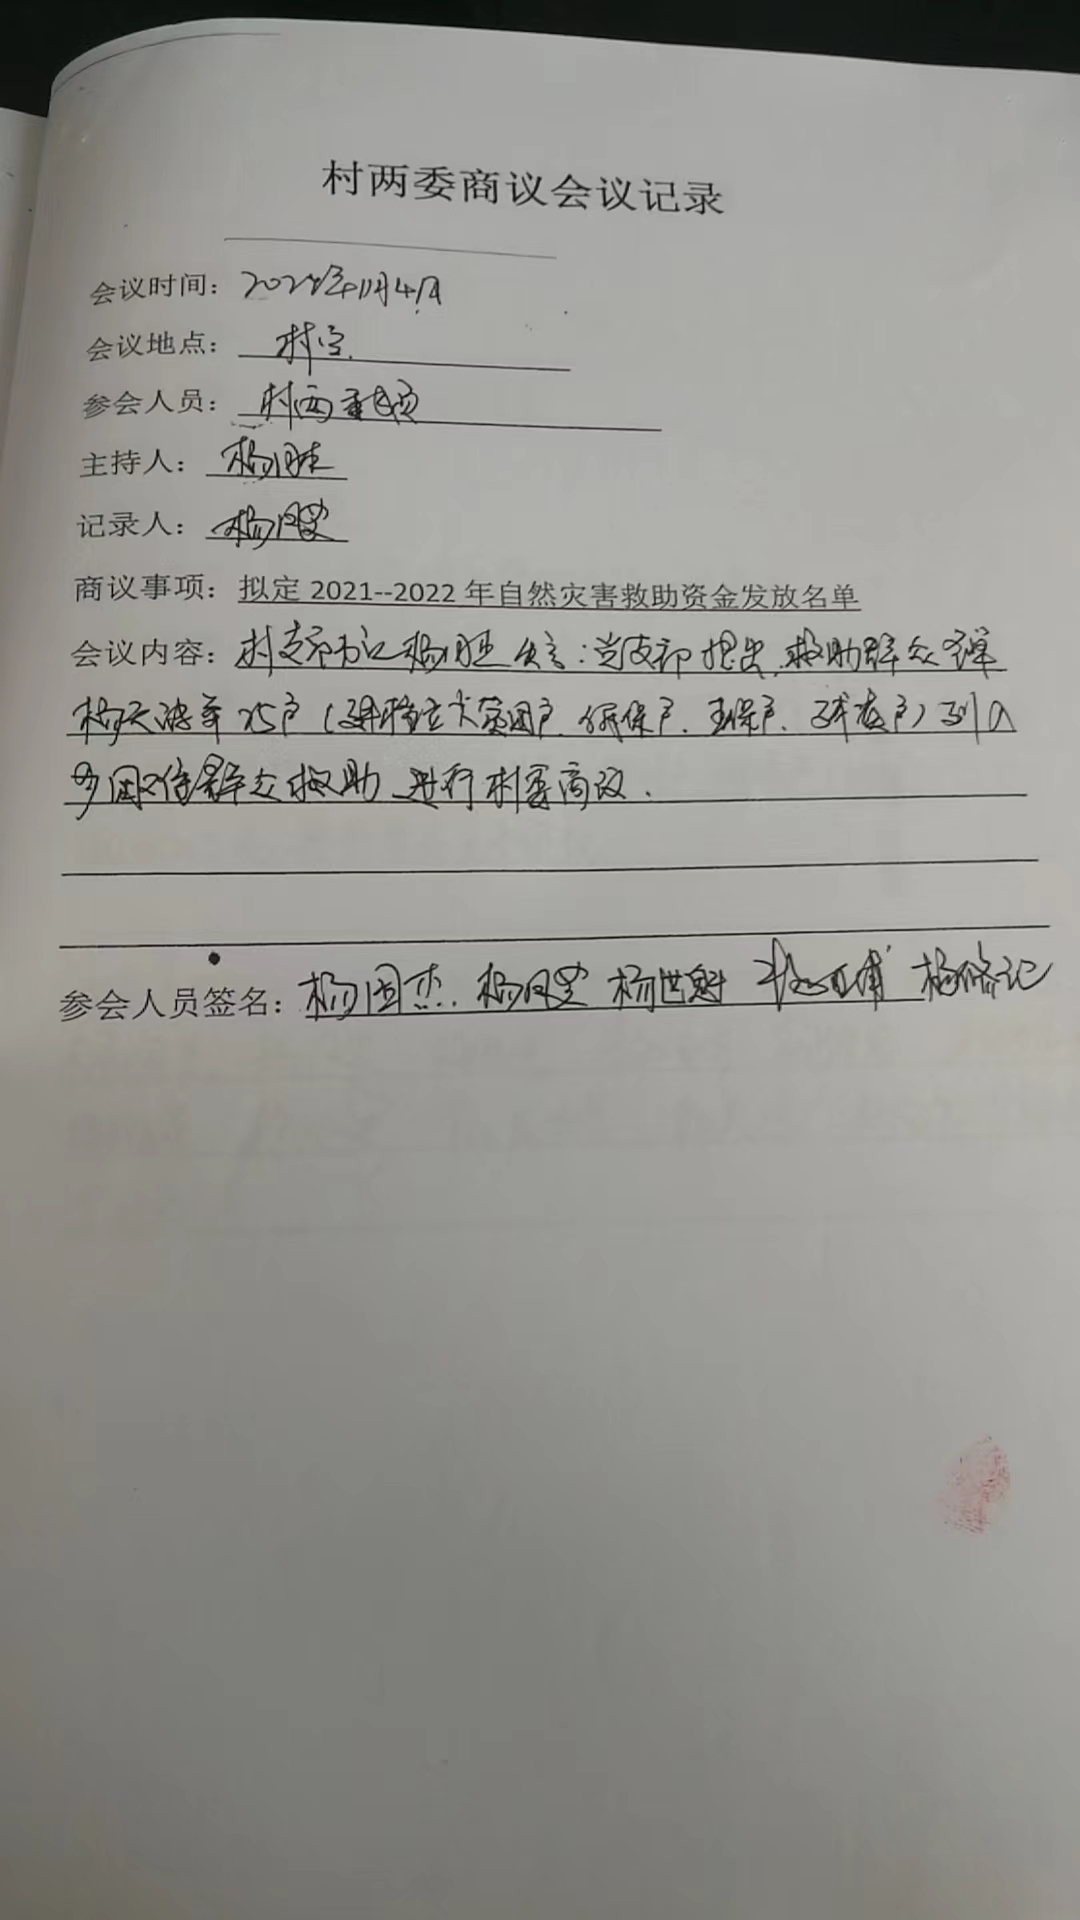 村两委商议会议记录
会议时间：年11月4日
会议地点：村室
参会人员：村两委成员
主持人：杨
记录人：杨
商议事项：拟定 2021--2022 年自然灾害救助资金发放名单
会议内容：村支部书记杨 发言：党支部提出，救助群众名单
杨天 等25户（建档立卡贫困户、低保户、五保户、残疾户）列入
困难群众救助，进行村委商议．
参会人员签名：杨国杰．杨 杨世魁 杨修记